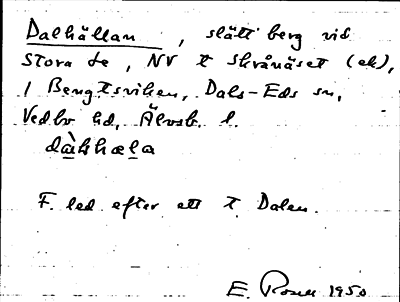 Dalhällan, slätt berg vid
Stora Le, NV t Skrånäset (ek),
i Bengtsviken, Dals-Eds sn,
Vedbo hd, Älvsb. l.
dàlhhæla
F. led efter ett t Dalen.
E. 1950